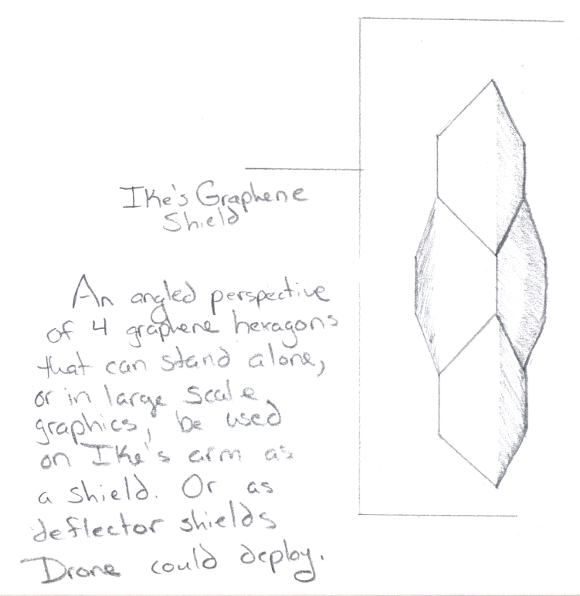 Ike's Graphene
Shield
An angled perspective
of 4 graphene hexagons
that can stand alone,
or in large scale
graphics, be used
on Ike's arm as
a shield. Or as
deflector shields
Drone could deploy.